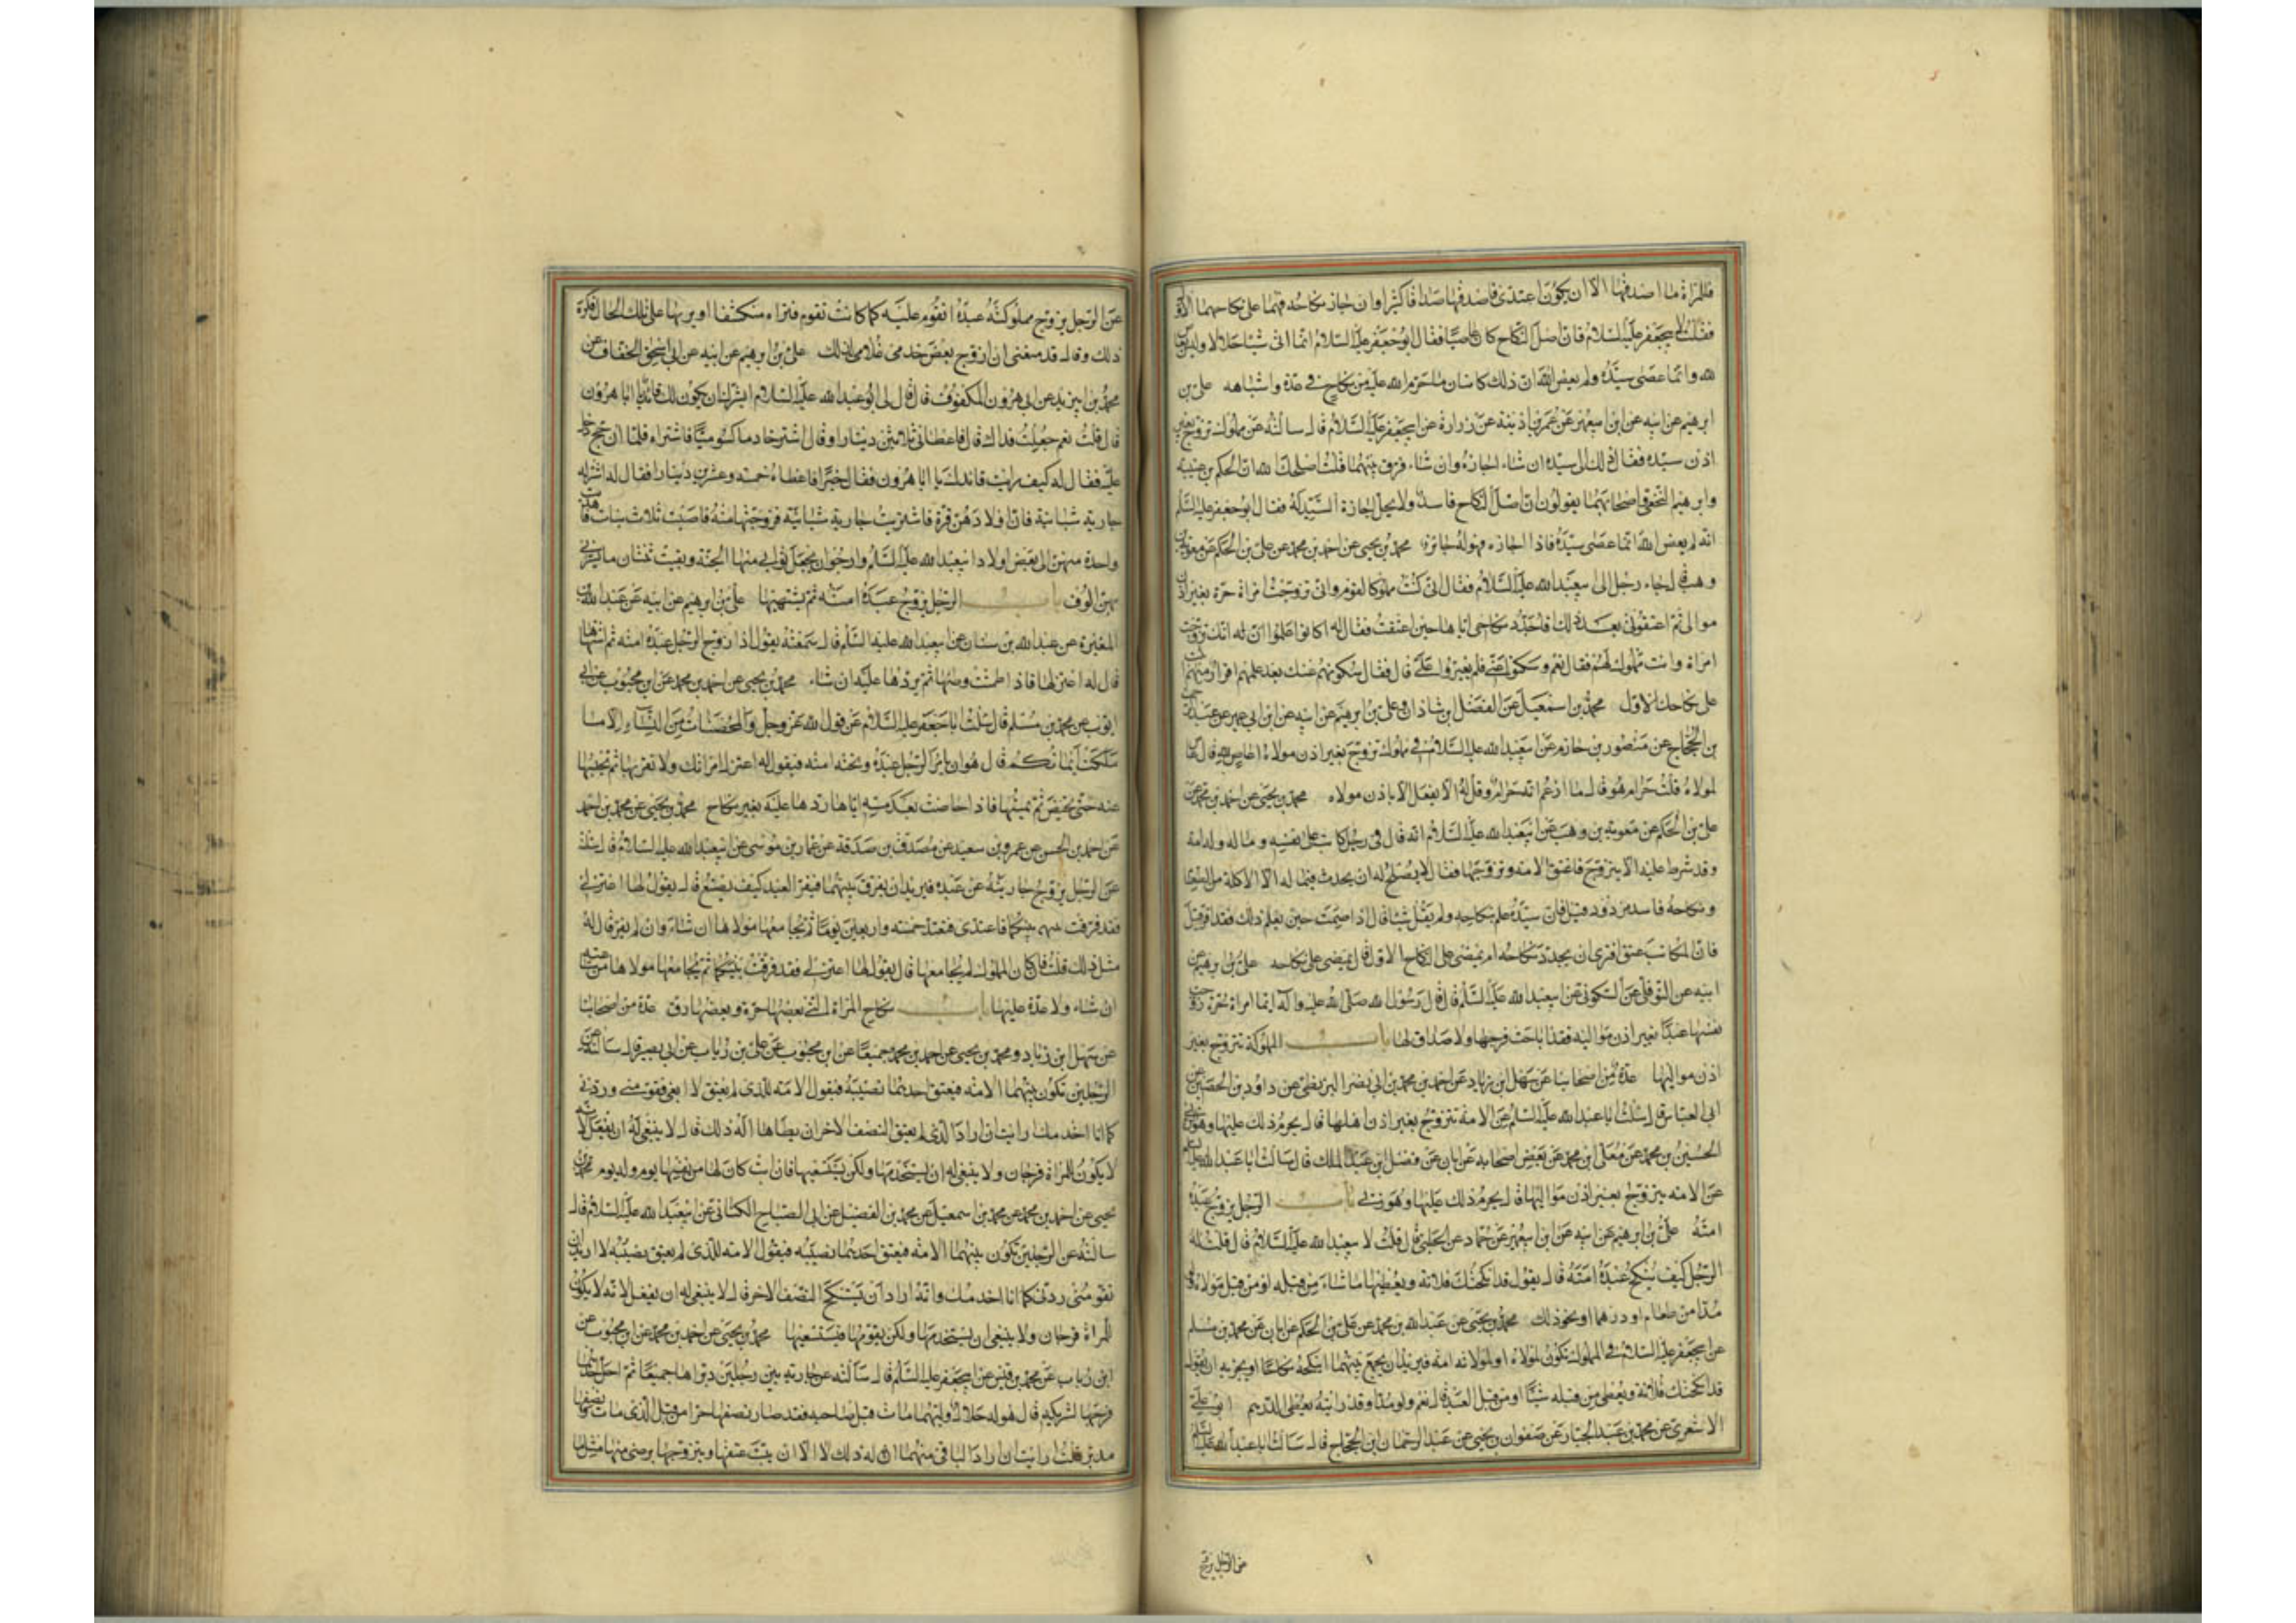 فللمراة ما اصدقها الا ان يكون اعتدى فاصدقها صداقا كثيرا وان جاز نكاحه فهما على نكاحهما الاول
فقلت لابى جعفر عليه السلام فان اصل النكاح كان عاصيا فقال ابو جعفر عليه السلام انما اتى شيئا حلالا وليس بعاص
لله وانما عصى سيده ولم يعص الله ان ذلك كاتيان ما حرم الله عليه من نكاح فى عدة واشباهه على بن
ابرهيم عن ابيه عن ابن ابى عمير عن عمر بن اذينة عن زرارة عن ابى جعفر عليه السلام قال سالته عن مملوك تزوج بغير
اذن سيده فقال ذلك الى سيده ان شاء اجازه وان شاء فرق بينهما قلت اصلحك الله ان الحكم بن عتيبة
وابرهيم النخعى واصحابهما يقولون ان اصل النكاح فاسد ولا يحل اجازة السيد له فقال ابو جعفر عليه السلم
انه لم يعص الله انما عصى سيده فاذا اجازه فهو له جائز محمد بن يحيى عن احمد بن محمد عن على بن الحكم عن معوية بن
وهب قال جاء رجل الى ابى عبد الله عليه السلام فقال انى كنت مملوكا لقوم وانى تزوجت امراة حرة بغير اذن
موالى ثم اعتقونى بعد ذلك فاجدد نكاحى اياها حين اعتقت فقال له اكانوا علموا انك تزوجت
امراة وانت مملوك لهم فقال نعم وسكتوا عنى فلم يغيروا على قال فقال سكوتهم عنك بعد علمهم اقرار منهم اثبت
على نكاحك الاول محمد بن اسمعيل عن الفضل ابن شاذان وعلى بن ابرهيم عن ابيه عن ابن ابى عمير عن عبد الرحمن
بن الحجاج عن منصور بن حازم عن ابى عبد الله عليه السلام فى مملوك تزوج بغير اذن مولاه اعاص لله قال عاص
لمولاه قلت حرام هو قال ما ازعم انه حرام وقل له الا يفعل الا باذن مولاه محمد بن يحيى عن احمد بن محمد عن
على بن الحكم عن معوية بن وهب عن ابى عبد الله عليه السلام انه قال فى رجل كاتب على نفسه وماله وله امة
وقد شرط عليه الا يتزوج فاعتق الامة وتزوجها فقال لا يصلح له ان يحدث فيما له الا الاكلة من الطعام
ونكاحه فاسد مردود قيل فان سيده علم بنكاحه ولم يقل شيئا قال اذا صمت حين يعلم ذلك فقد اقر قيل
فان المكاتب عتق افترى ان يجدد نكاحه ام يمضى على النكاح الاول قال يمضى على نكاحه على بن ابرهيم عن
ابيه عن النوفلى عن السكونى عن ابى عبد الله عليه السلم قال قال رسول الله صلى الله عليه واله ايما امراة حرة زوجت
نفسها عبدا بغير اذن مواليه فقد اباحت فرجها ولا صداق لها باب المملوكة تتزوج بغير
اذن مواليها عدة من اصحابنا عن سهل ابن زياد عن احمد بن محمد بن ابى نصر البزنطى عن داود بن الحصين عن
ابى العباس قال سئلت ابا عبد الله عليه السلم عن الامة تتزوج بغير اذن اهلها قال يحرم ذلك عليها وهو زنى
الحسين بن محمد عن معلى ابن محمد عن بعض اصحابه عن ابان عن فضل ابن عبد الملك قال سالت ابا عبد الله عليه السلم
عن الامة تتزوج بغير اذن مواليها قال يحرم ذلك عليها وهو زنى باب الرجل يزوج عبده
امته على بن ابرهيم عن ابيه عن ابن ابى عمير عن حماد عن الحلبى قال قلت لابى عبد الله عليه السلام قال قلت له
الرجل كيف ينكح عبده امته قال يقول قد انكحتك فلانة ويعطيها ما شاء من قبله او من قبل مولاه ولو
مدا من طعام او درهما او نحو ذلك محمد بن يحيى عن عبد الله بن محمد عن على بن الحكم عن ابان عن محمد بن مسلم
عن ابى جعفر عليه السلام فى المملوك تكون لمولاه او لمولاته امة فيريد ان يجمع بينهما اينكحه نكاحا او يجزيه ان يقول
قد انكحتك فلانة ويعطى من قبله شيئا او من قبل العبد قال نعم ولو مدا وقد رايته يعطى الدرهم ابو على
الاشعرى عن محمد بن عبد الجبار عن صفوان بن يحيى عن عبد الرحمان ابن الحجاج قال سالت ابا عبد الله عليه السلم
عن الرجل يزوج
عن الرجل يزوج مملوكته عبده اتقوم عليه كما كانت تقوم فتراه منكشفا او يريها على تلك الحال فكره
ذلك وقال قد منعنى ان ازوج بعض خدمى غلامى لذلك على بن ابرهيم عن ابيه عن ابى اسحق الخفاف عن
محمد بن ابى زيد عن ابى هرون المكفوف قال قال لى ابو عبد الله عليه السلام ايسرك ان يكون لك قائد يا ابا هرون
قال قلت نعم جعلت فداك قال فاعطانى ثلاثين دينارا وقال اشتر خادما كسوميا فاشتراه فلما ان حج دخل
عليه فقال له كيف رايت قائدك يا ابا هرون فقال خيرا فاعطاه خمسة وعشرين دينارا فقال له اشتر له
جارية شبانية فان اولادهن قرة فاشتريت جارية شبانية فزوجتها منه فاصبت ثلاث بنات فاهديت
واحدة منهن الى بعض اولاد ابى عبد الله عليه السلم وارجو ان يجعل ثوابى منها الجنة وبقيت ثنتان ما يسرنى
بهن الوف باب الرجل يزوج عبده امته ثم يشتهيها على بن ابرهيم عن ابيه عن عبد الله بن
المغيرة عن عبد الله بن سنان عن ابى عبد الله عليه السلم قال سمعته يقول اذا زوج الرجل عبده امته ثم اشتهاها
قال له اعتزلها فاذا طمثت وطئها ثم يردها عليه ان شاء محمد بن يحيى عن احمد بن محمد عن ابن محبوب عن ابى
ايوب عن محمد بن مسلم قال سئلت ابا جعفر عليه السلام عن قول الله عز وجل والمحصنات من النساء الا ما
ملكت ايمانكم قال هو ان يامر الرجل عبده وتحته امته فيقول له اعتزل امراتك ولا تقربها ثم يحبسها
عنه حتى تحيض ثم يمسها فاذا حاضت بعد مسه اياها ردها عليه بغير نكاح محمد بن يحيى عن محمد بن احمد
عن احمد بن الحسن عن عمرو بن سعيد عن مصدق بن صدقة عن عمار بن موسى عن ابى عبد الله عليه السلام قال سئلته
عن الرجل يزوج جاريته من عبده فيريد ان يفرق بينهما فيفر العبد كيف يصنع قال يقول لها اعتزلى
فقد فرقت بينكما فاعتدى فتعتد خمسة واربعين يوما ثم يجامعها مولاها ان شاء وان لم يفر قال له
مثل ذلك قلت فان كان المملوك لم يجامعها قال يقول لها اعتزلى فقد فرقت بينكما ثم يجامعها مولاها من ساعته
ان شاء ولا عدة عليها باب نكاح المراة التى بعضها حرة وبعضها رق عدة من اصحابنا
عن سهل ابن زياد ومحمد بن يحيى عن احمد بن محمد جميعا عن ابن محبوب عن على بن رئاب عن ابى بصير قال سالته عن
الرجلين تكون بينهما الامة فيعتق احدهما نصيبه فيقول الامة للذى لم يعتق لا ابغى فقومنى وردنى
كما انا اخدمك ارايت ان اراد الذى لم يعتق النصف الاخر ان يطاها اله ذلك قال لا ينبغى له ان يفعل لانه
لا يكون للمراة فرجان ولا ينبغى له ان يستخدمها ولكن يستسعيها فان ابت كان لها من نفسها يوم وله يوم محمد بن
يحيى عن احمد بن محمد عن محمد بن اسمعيل عن محمد بن الفضيل عن ابى الصباح الكنانى عن ابى عبد الله عليه السلام قال
سالته عن الرجلين تكون بينهما الامة فيعتق احدهما نصيبه فيقول الامة للذى لم يعتق نصيبه لا اريد ان
تقومنى ردنى كما انا اخدمك وانه اراد ان يستنكح النصف الاخر قال لا ينبغى له ان يفعل لانه لا يكون
للمراة فرجان ولا ينبغى ان يستخدمها ولكن يقومها فيستسعيها محمد بن يحيى عن احمد بن محمد عن ابن محبوب عن
ابن رئاب عن محمد بن قيس عن ابى جعفر عليه السلم قال سالته عن جارية بين رجلين دبراها جميعا ثم احل احدهما
فرجها لشريكه قال هو له حلال وايهما مات قبل صاحبه فقد صار نصفها حرا من قبل الذى مات ونصفها
مدبرا قلت ارايت ان اراد الباقى منهما ان له ذلك قال لا الا ان يبت عتقها ويتزوجها برضى منها متى ما